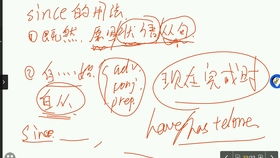 since的用法
①既然,原因状语从句
②自……始 adv. conj. prep. 现在完成时
自从 have/has
since